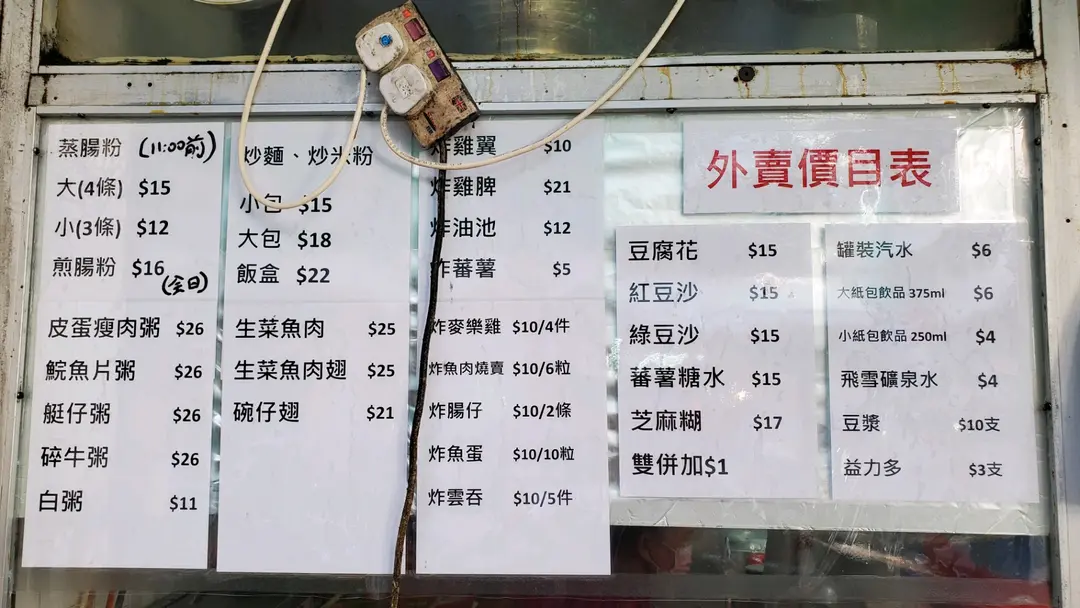 蒸腸粉 (11:00前)
大(4條) $15
小(3條) $12
煎腸粉 $16 (全日)
皮蛋瘦肉粥 $26
鯇魚片粥 $26
艇仔粥 $26
碎牛粥 $26
白粥 $11
炒麵、炒米粉
小包 $15
大包 $18
飯盒 $22
生菜魚肉 $25
生菜魚肉翅 $25
碗仔翅 $21
炸雞翼 $10
炸雞脾 $21
炸油池 $12
炸蕃薯 $5
炸麥樂雞 $10/4件
炸魚肉燒賣 $10/6粒
炸腸仔 $10/2條
炸魚蛋 $10/10粒
炸雲吞 $10/5件
外賣價目表
豆腐花 $15
紅豆沙 $15
綠豆沙 $15
蕃薯糖水 $15
芝麻糊 $17
雙併加$1
罐裝汽水 $6
大紙包飲品 375ml $6
小紙包飲品 250ml $4
飛雪礦泉水 $4
豆漿 $10支
益力多 $3支